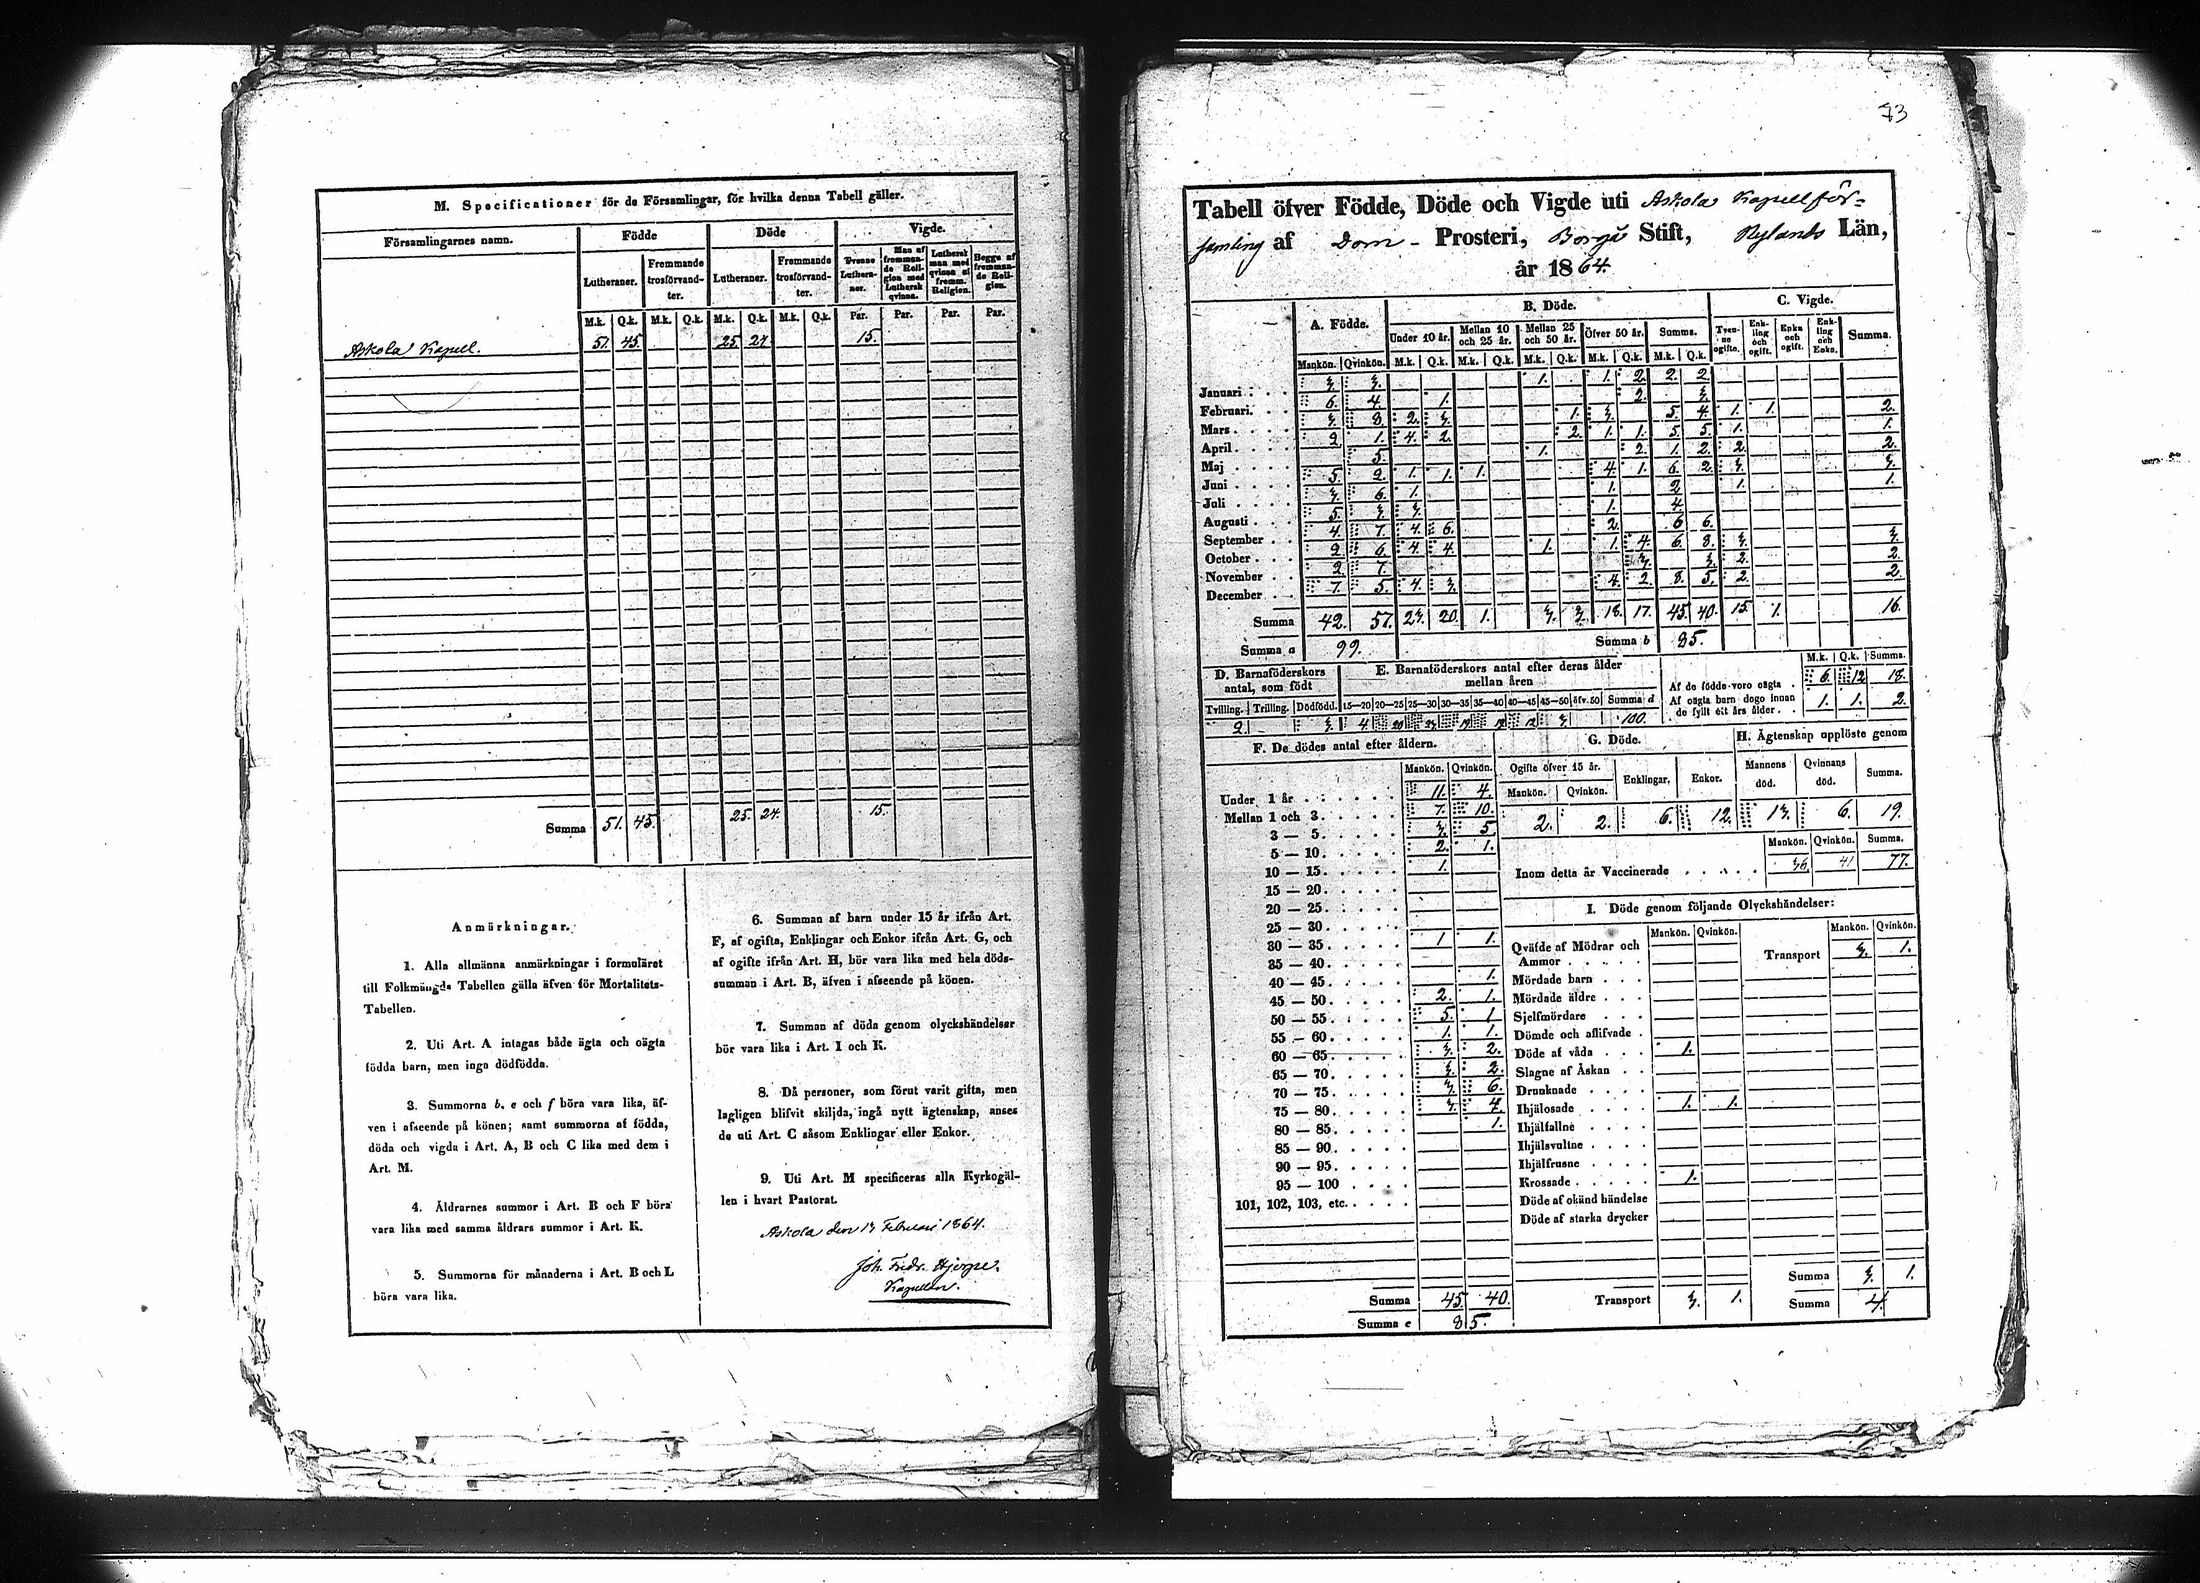 M. Specificationer för de Församlingar, för hvilka denna Tabell gäller.
Församlingarnes namn.
Födde
Döde
Vigde.
Lutheraner.
Fremmande trosförvand-
ter.
Lutheraner.
Fremmande trosförvand-
ter.
Tvenne Luthera-
ner.
Man af fremman-
de Reli-
gion med Luthersk qvinna.
Luthersk man med qvinna af fremm. Religion.
Begge af fremman-
de Reli-
gion.
M.k. Q.k. M.k. Q.k. M.k. Q.k. M.k. Q.k. Par. Par. Par. Par.
Askola Kapell. 51. 45. 25. 24. 15.
Summa 51. 45. 25. 24. 15.
Anmärkningar.
1. Alla allmänna anmärkningar i formuläret
till Folkmängds Tabellen gälla äfven för Mortalitets-
Tabellen.
2. Uti Art. A intagas både ägta och oägta
födda barn, men inga dödfödda.
3. Summorna b, e och f böra vara lika, äf-
ven i afseende på könen; samt summorna af födda,
döda och vigda i Art. A, B och C lika med dem i
Art. M.
4. Åldrarnes summor i Art. B och F böra
vara lika med samma åldrars summor i Art. K.
5. Summorna för månaderna i Art. B och L
böra vara lika.
6. Summan af barn under 15 år ifrån Art.
F, af ogifta, Enklingar och Enkor ifrån Art. G, och
af ogifte ifrån Art. H, bör vara lika med hela döds-
summan i Art. B, äfven i afseende på könen.
7. Summan af döda genom olyckshändelser
bör vara lika i Art. I och K.
8. Då personer, som förut varit gifta, men
lagligen blifvit skiljda, ingå nytt ägtenskap, anses
de uti Art. C såsom Enklingar eller Enkor.
9. Uti Art. M specificeras alla Kyrkogäl-
len i hvart Pastorat.
Askola den 13 Februari 1864.
Joh. Fredr. Hjerpe.
Kapellan.
73
Tabell öfver Födde, Döde och Vigde uti Askola Kapellför-
samling af Dom- Prosteri, Borgå Stift, Nylands Län,
år 1864.
A. Födde.
B. Döde.
C. Vigde.
Under 10 år. Mellan 10 och 25 år. Mellan 25 och 50 år. Öfver 50 år. Summa.
Tven-
ne ogifte. Enk-
ling och ogift. Enka och ogift. Enk-
ling och Enka. Summa.
Mankön. Qvinkön. M.k. Q.k. M.k. Q.k. M.k. Q.k. M.k. Q.k. M.k. Q.k.
Januari 3. 3. 1. 1. 2. 2. 2.
Februari. 6. 4. 1. 2. 3.
Mars 3. 8. 2. 3. 1. 3. 5. 4. 1. 1. 2.
April. 2. 1. 4. 2. 2. 1. 1. 5. 5. 1. 1.
Maj 5. 1. 2. 1. 2. 2. 2.
Juni 5. 2. 1. 1. 1. 4. 1. 6. 2. 3. 3.
Juli 3. 6. 1. 1. 2. 1. 1.
Augusti 5. 3. 3. 1. 4.
September 4. 7. 4. 6. 2. 6 6.
October 2. 6. 4. 4. 1. 1. 4. 6. 8. 3. 3.
November 2. 7. 3. 3. 2. 2.
December 7. 5. 4. 3. 4. 2. 8. 5. 2. 2.
Summa 42. 57. 23. 20. 1. 3. 3. 18. 17. 45. 40. 15. 1. 16.
Summa a 99. Summa b 85.
D. Barnaföderskors antal, som födt
E. Barnaföderskors antal efter deras ålder mellan åren
M.k. Q.k. Summa.
Af de födde voro oägta 6. 12 18.
Af oägta barn dogo innan de fyllt ett års ålder 1. 1. 2.
Tvilling. Trilling. Dödfödd. 15—20 20—25 25—30 30—35 35—40 40—45 45—50 öfv. 50 Summa d
2. 3. 4 20 12 3 100.
F. De dödes antal efter åldern.
Mankön. Qvinkön.
Under 1 år 11. 4.
Mellan 1 och 3. 7. 10.
3 — 5. 3. 5.
5 — 10. 2. 1.
10 — 15. 1.
15 — 20.
20 — 25.
25 — 30.
30 — 35. 1 1.
35 — 40.
40 — 45. 1.
45 — 50. 2. 1.
50 — 55. 5. 1
55 — 60. 1. 1.
60 — 65. 3. 2.
65 — 70. 3. 2.
70 — 75. 3. 6.
75 — 80. 3. 4.
80 — 85. 1.
85 — 90.
90 — 95.
95 — 100
101, 102, 103, etc.
Summa 45. 40.
Summa e 85.
G. Döde.
Ogifte öfver 15 år. Enklingar. Enkor.
Mankön. Qvinkön.
2. 2. 6. 12.
H. Ägtenskap upplöste genom
Mannens död. Qvinnans död. Summa.
13. 6. 19.
Mankön. Qvinkön. Summa.
Inom detta år Vaccinerade 36. 41 77.
I. Döde genom följande Olyckshändelser:
Mankön. Qvinkön. Mankön. Qvinkön.
Qväfde af Mödrar och
Ammor Transport 3. 1.
Mördade barn
Mördade äldre
Sjelfmördare
Dömde och aflifvade
Döde af våda 1.
Slagne af Åskan
Drunknade
Ihjälosade 1. 1.
Ihjälfallne
Ihjälsvultne
Ihjälfrusne
Krossade 1.
Döde af okänd händelse
Döde af starka drycker
Summa 3. 1.
Transport 3. 1. Summa 4.